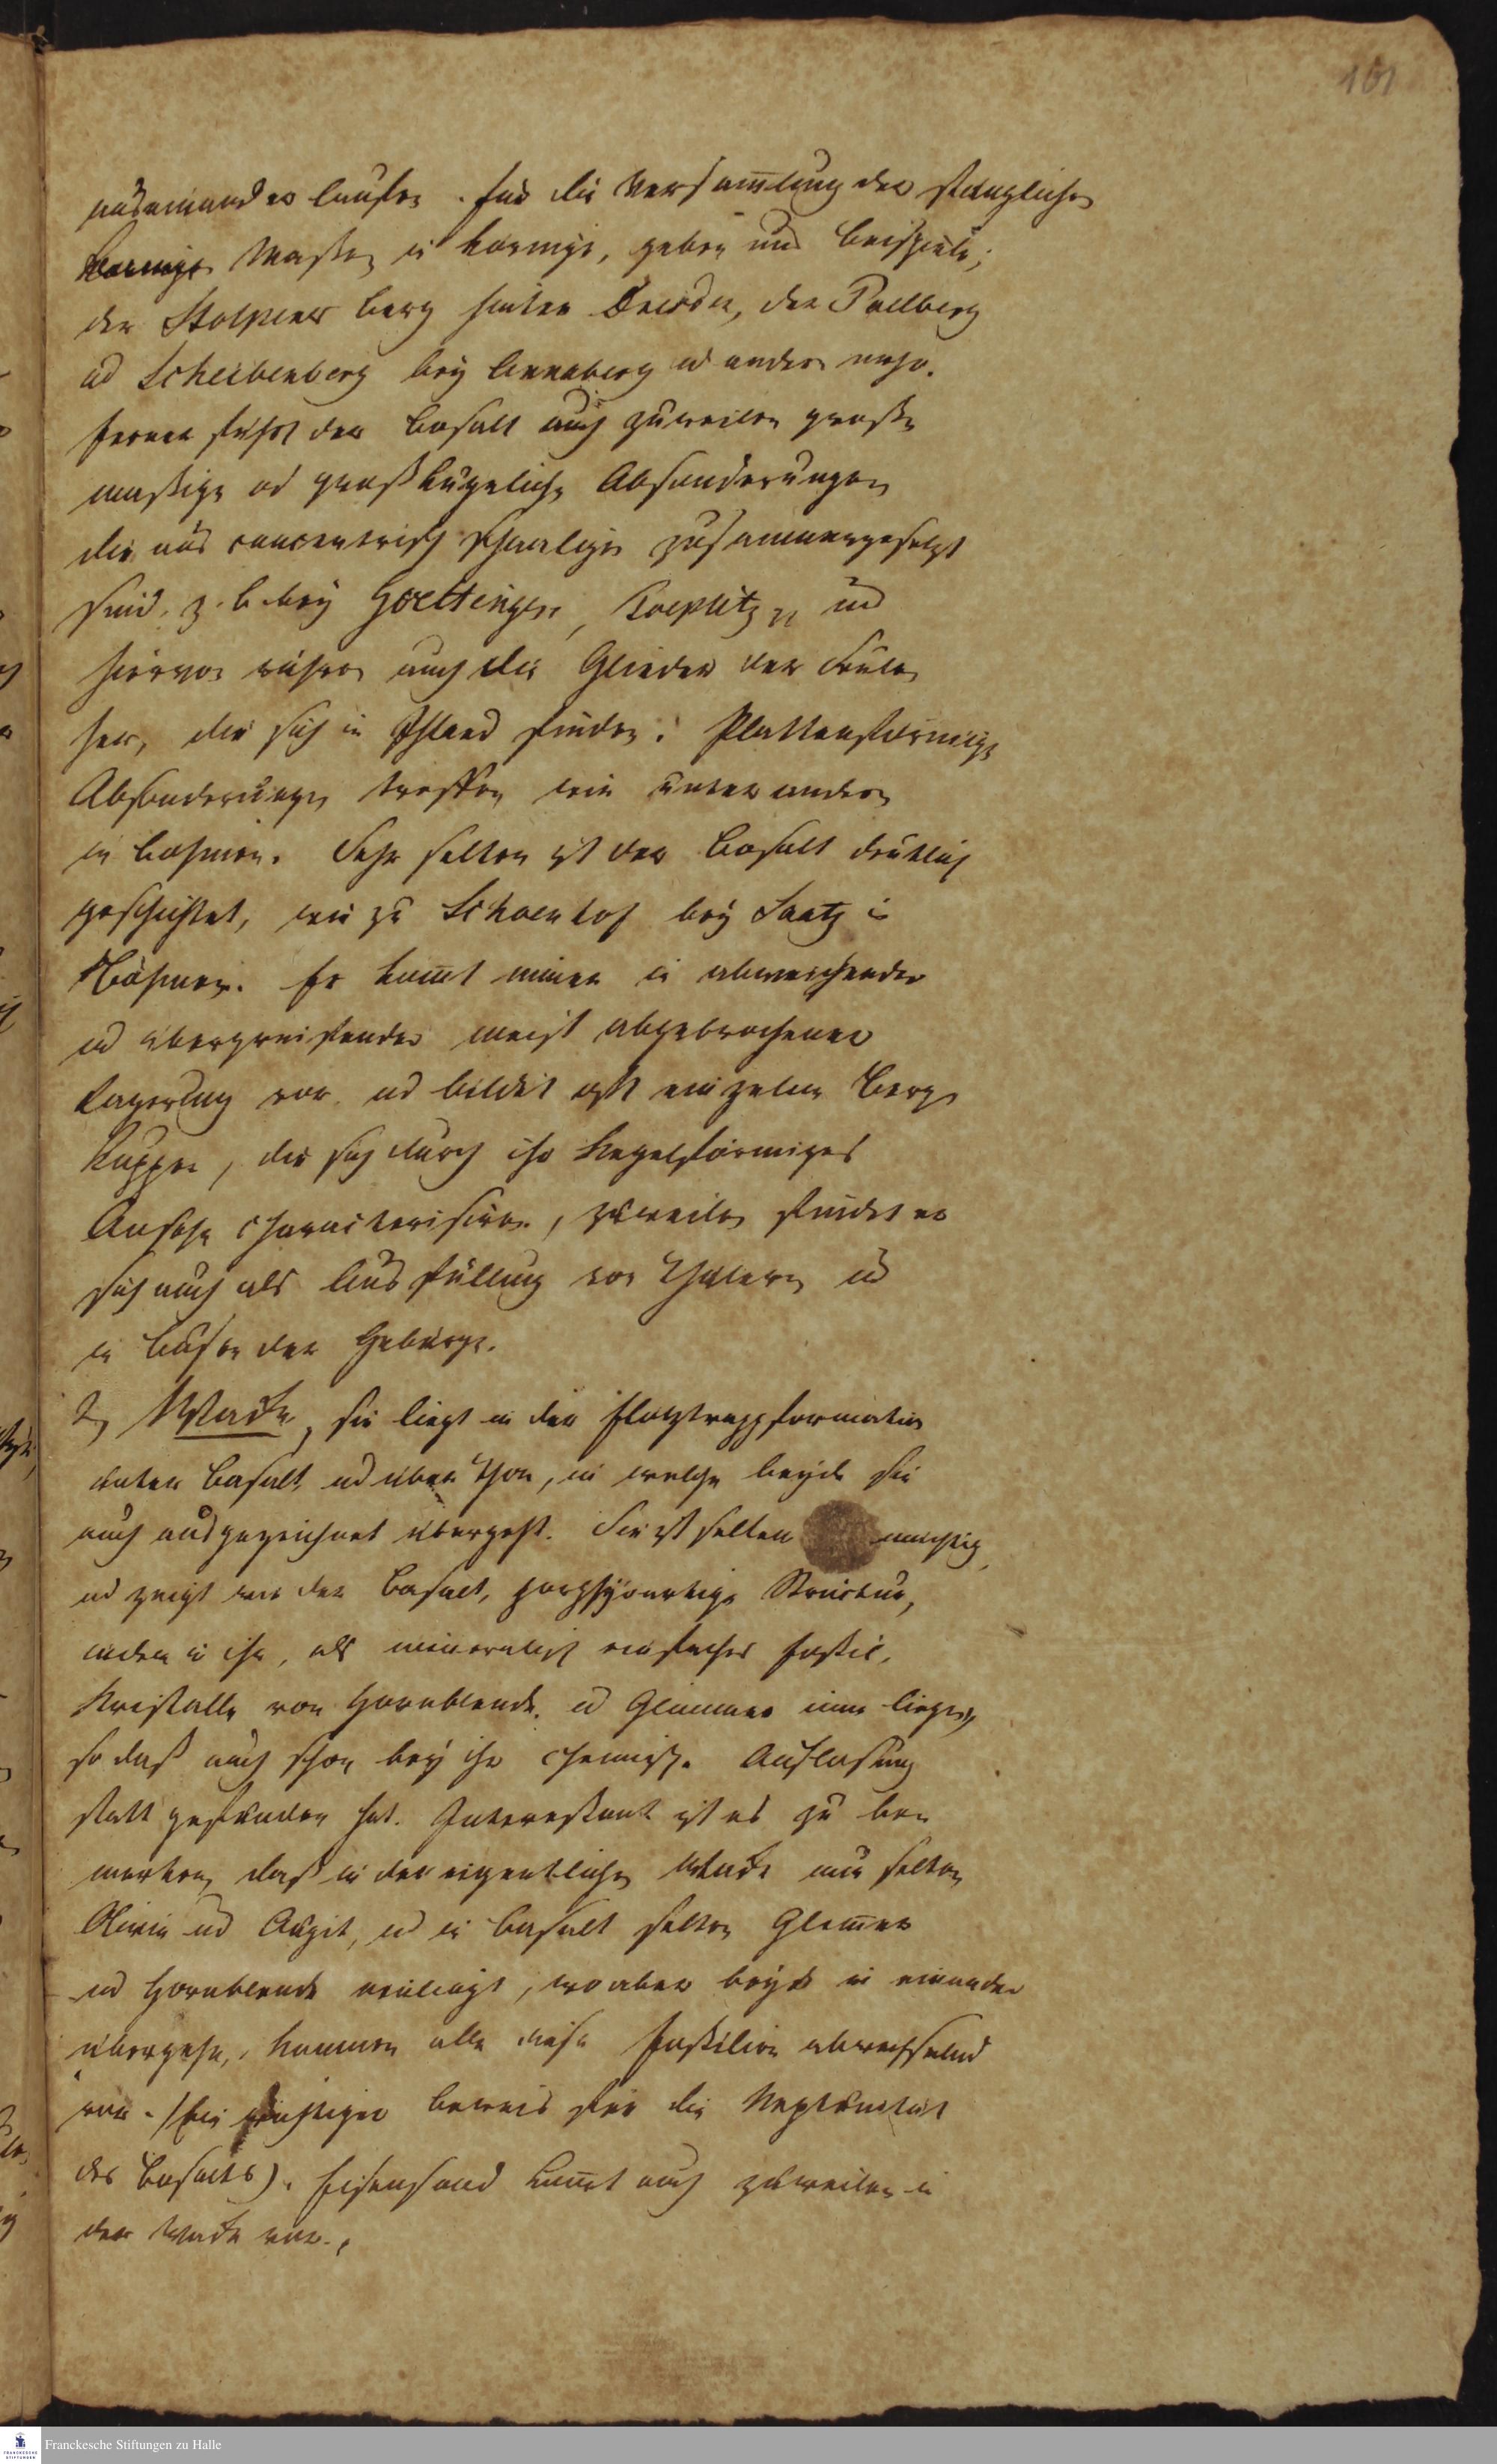 101
auseinander laufen. für die Versam̅lung der stänglichen
körnige Maßen in körnige, geben uns Beispiele;
der Stolpner Berg hinter Dresden, der Poelberg
ud Scheibenberg bey Annaberg ud andere mehr.
Ferner führt der Basalt auch zuweilen große
maßige od großkugeliche Absonderungen
die aus concentrisch schaaligen zusammengesetzt
sind, z. b. bey Goettingen, Toeplitz und
hiervon rühren auch die Glieder der Säulen
her, die sich in Island finden. Plattenförmige
Absonderungen treffen wir unter andern
in Bohmen. Sehr selten ist der Basalt deutlich
geschichtet, wie zu Schoenhof bey Saatz in
Böhmen. Er kom̅t immer in abweichender
ud übergreifender meist abgebrochener
Lagerung vor ud bildet oft einzelne Berg
Kuppen, die sich durch ihr Kegelförmiges
Ansehn characterisiren, zuweilen findet er
sich auch als Ausfüllung von Thälern ud
in Busen der Gebürge.
2, Wacke, sie liegt in der Flötztrappformation
unter Basalt ud über Thon, in welche beyde sie
auch ausgezeichnet übergeht. Sie ist selten mächtig,
ud zeigt wie der Basalt, porphyrartige Structur,
indem in ihr, als mineralisch einfaches Foßil,
Kristalle von Hornblende ud Glimmer inne liegen,
so daß auch schon bey ihr chemische Auflösung
statt gefunden hat. Interessant ist es zu be
merken, daß in der eigentlichen Wacke nur selten
Olivin ud Augit, ud in Basalt selten Glim̅er
ud Hornblende einliegt, wo aber beyde in einander
übergehn, kommen alle diese Foßilien abwechselnd
vor. (Ein wichtiger Beweis für die Neptunität
des Basalts). Eisensand kom̅t auch zuweilen in
der Wacke vor.
Franckesche Stiftungen zu Halle